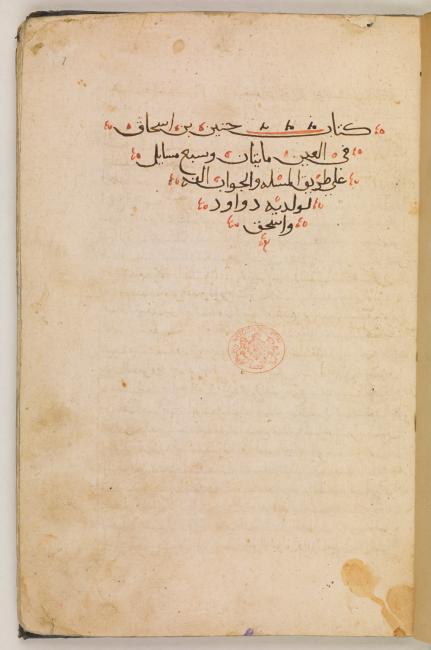 كتاب حنين بن اسحاق
في العين مايتان وسبع مسايل
على طريق المسله والجواب الفه
لولديه دواود
واسحق